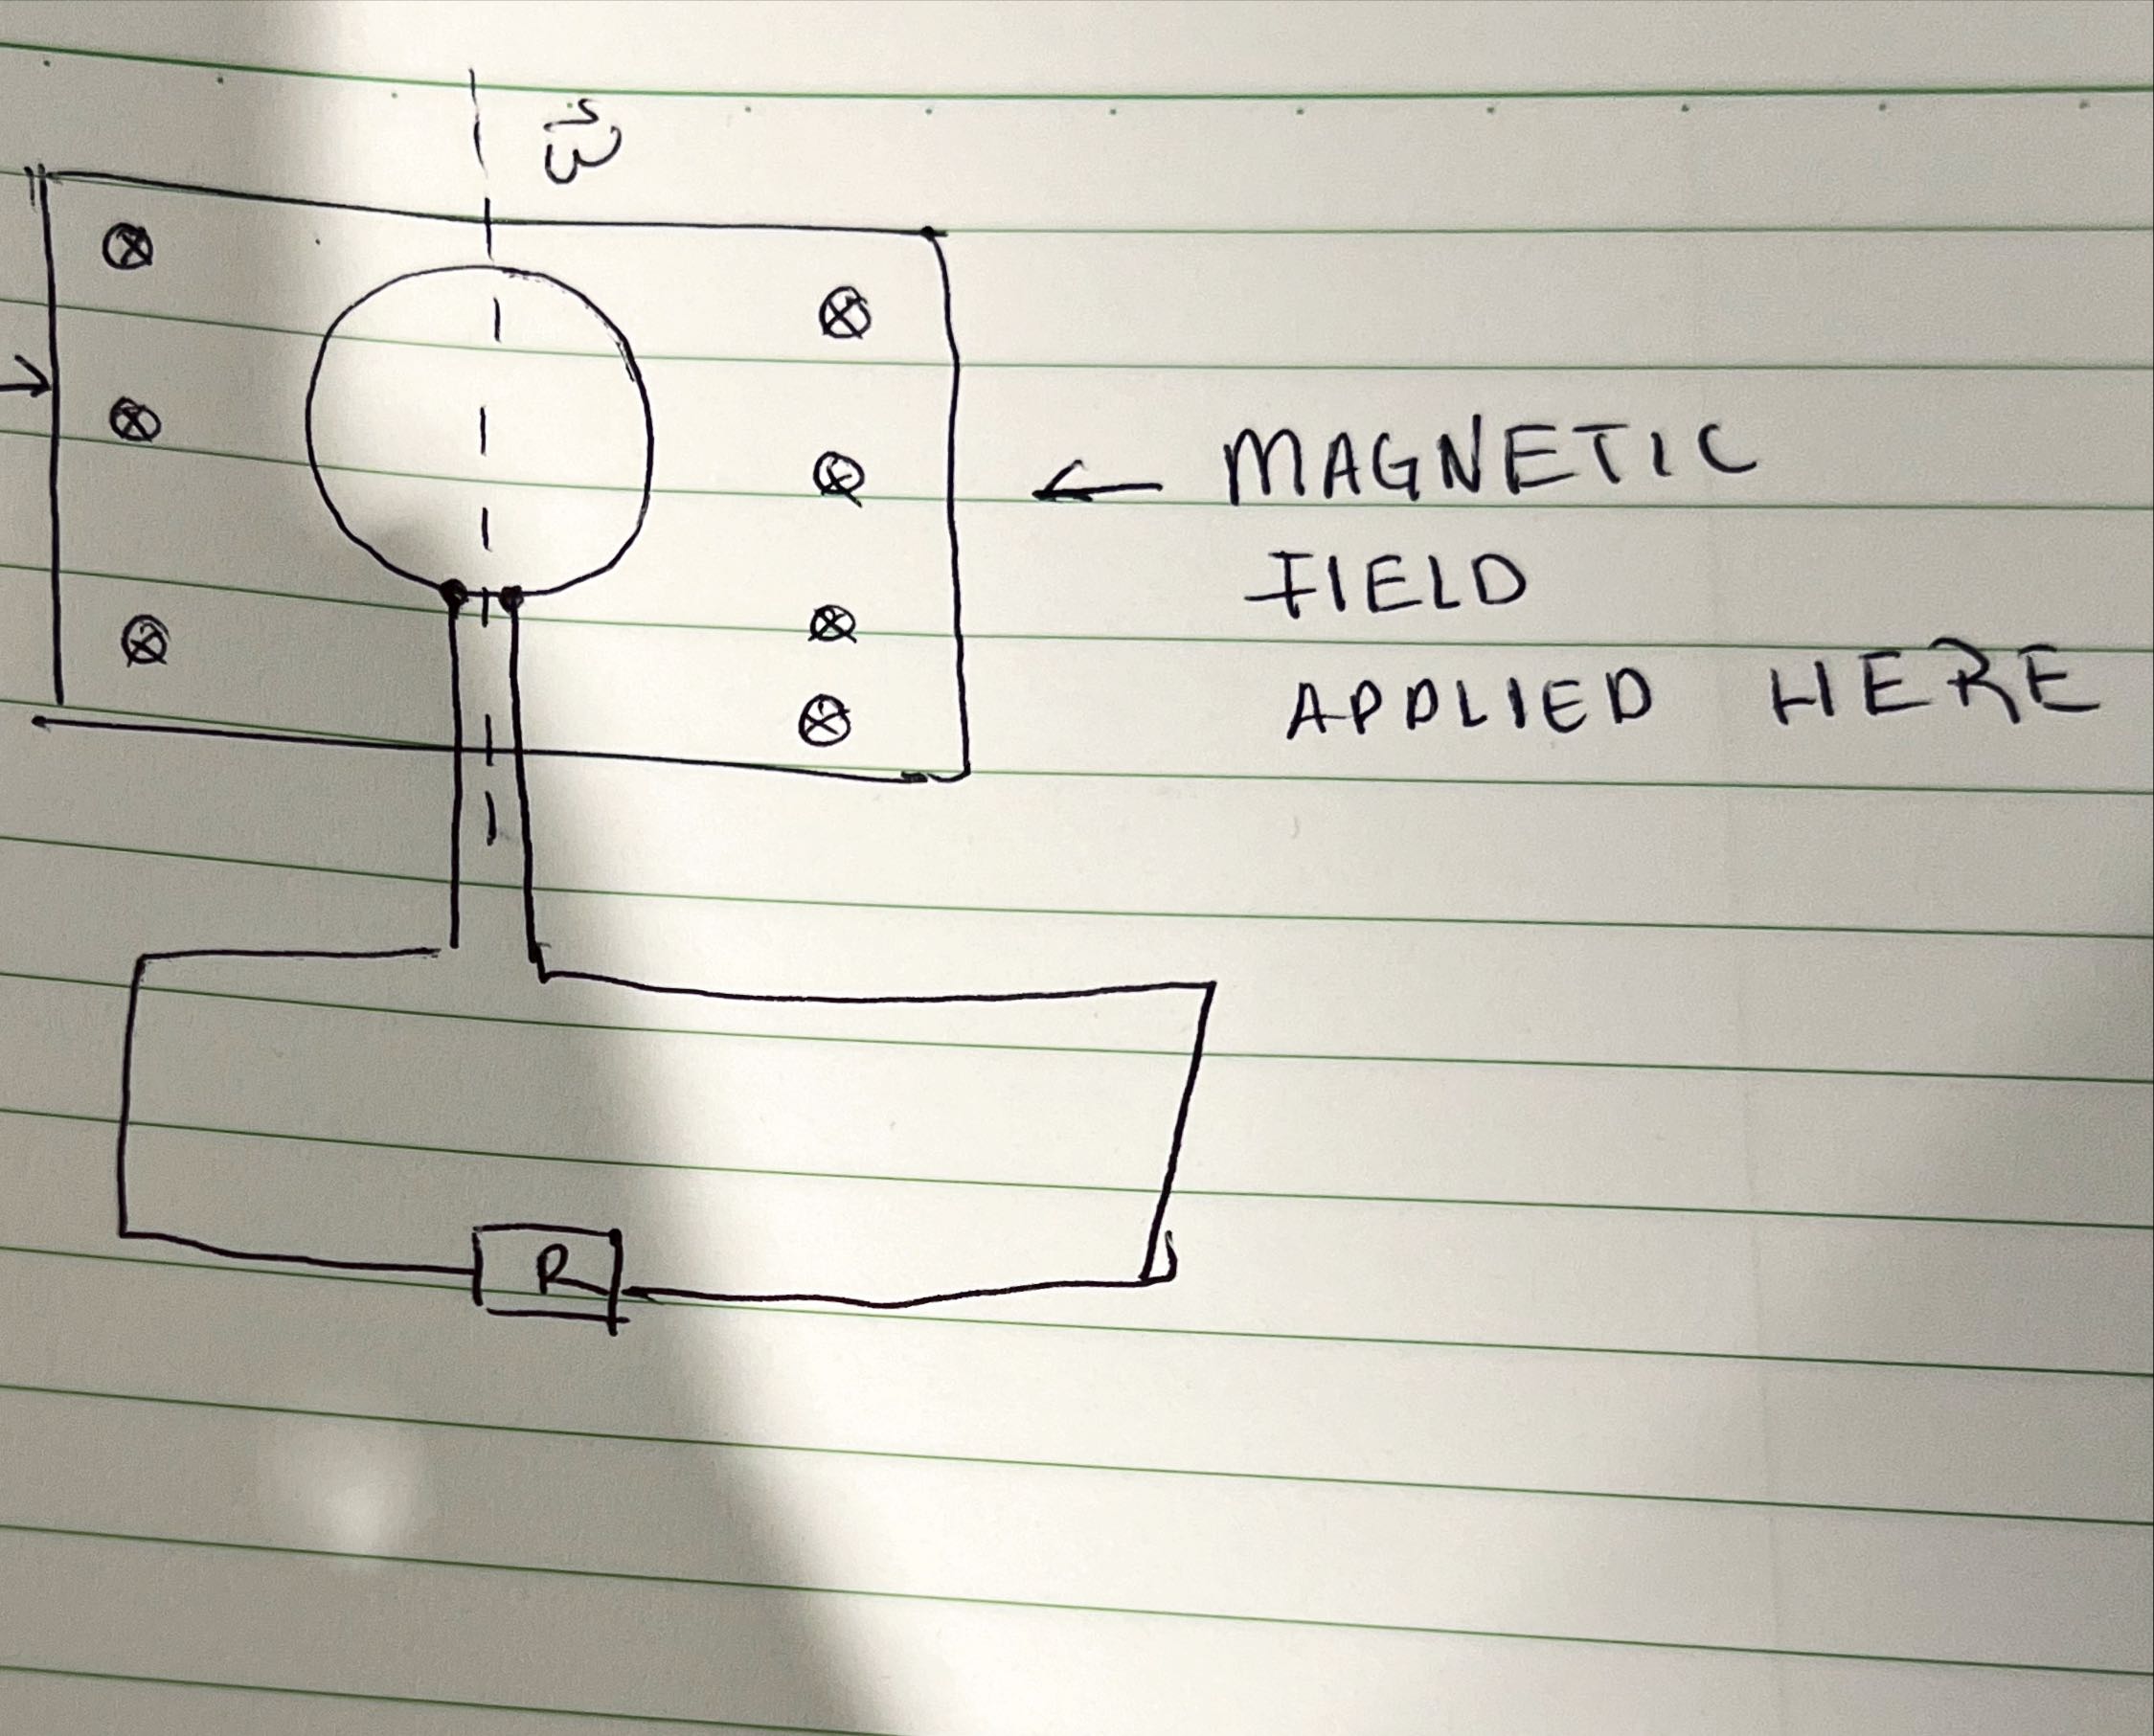 ω
MAGNETIC
FIELD
APPLIED HERE
R